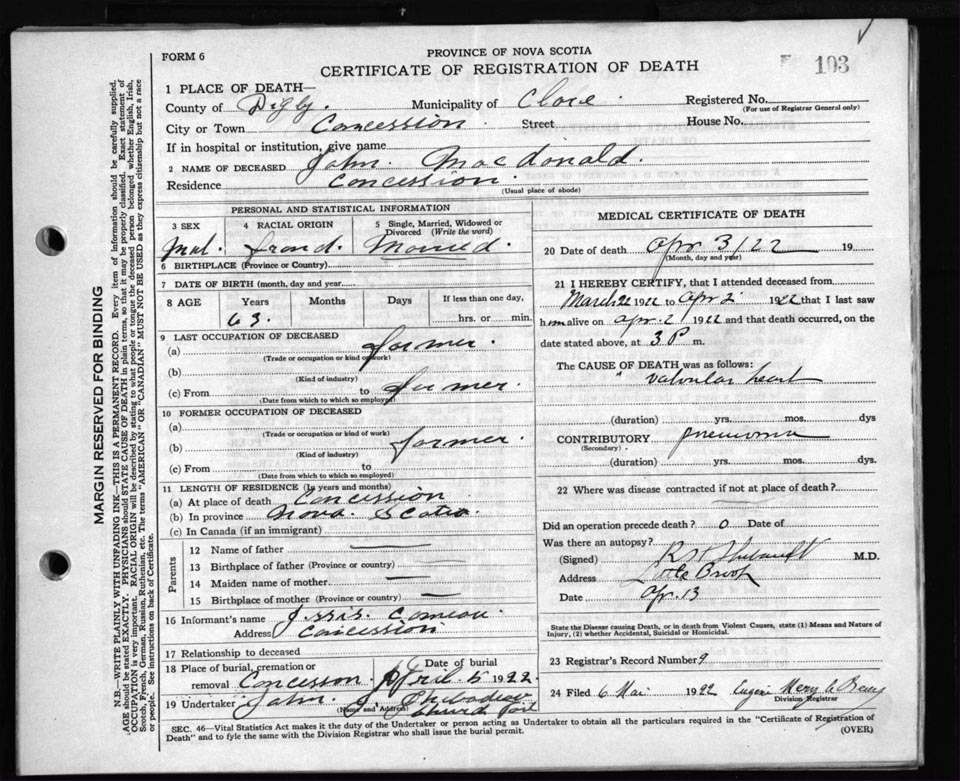 FORM 6
PROVINCE OF NOVA SCOTIA
CERTIFICATE OF REGISTRATION OF DEATH
103
1 PLACE OF DEATH—
County of Digby. Municipality of Clare. Registered No.
(For use of Registrar General only)
City or Town Concession Street House No.
If in hospital or institution, give name
2 NAME OF DECEASED John. Mac donald.
Residence Concession.
(Usual place of abode)
PERSONAL AND STATISTICAL INFORMATION
3 SEX 4 RACIAL ORIGIN 5 Single, Married, Widowed or Divorced (Write the word)
Mal. Married.
6 BIRTHPLACE (Province or Country)
7 DATE OF BIRTH (month, day and year)
8 AGE Years Months Days If less than one day,
63. hrs. or min.
9 LAST OCCUPATION OF DECEASED
(a) farmer.
(Trade or occupation or kind of work)
(b)
(Kind of industry)
(c) From to farmer.
(Date from which to which so employed)
10 FORMER OCCUPATION OF DECEASED
(a)
(Trade or occupation or kind of work)
(b) farmer.
(Kind of industry)
(c) From to
(Date from which to which so employed)
11 LENGTH OF RESIDENCE (In years and months)
(a) At place of death Concession
(b) In province Nova. Scotia.
(c) In Canada (if an immigrant)
Parents
12 Name of father
13 Birthplace of father (Province or country)
14 Maiden name of mother
15 Birthplace of mother (Province or country)
16 Informant's name Comeau.
Address Concession
17 Relationship to deceased
18 Place of burial, cremation or removal Concession Date of burial April 5 1922
19 Undertaker John.
(Name and Address) Church Point
MEDICAL CERTIFICATE OF DEATH
20 Date of death Apr 3/22 19
(Month, day and year)
21 I HEREBY CERTIFY, that I attended deceased from
March 22 1922 to Apr 2 1922 that I last saw
him alive on Apr. 2 1922 and that death occurred, on the
date stated above, at 3 P m.
The CAUSE OF DEATH was as follows:
" valvular heart
(duration) yrs. mos. dys
CONTRIBUTORY pneumonia
(Secondary)
(duration) yrs. mos. dys.
22 Where was disease contracted if not at place of death?
Did an operation precede death? 0 Date of
Was there an autopsy?
(Signed) M.D.
Address Little Brook
Date Apr. 13
State the Disease causing Death, or in death from Violent Causes, state (1) Means and Nature of
Injury, (2) whether Accidental, Suicidal or Homicidal.
23 Registrar's Record Number 9
24 Filed 6 Mai 1922 Eugene
Division Registrar
SEC. 46—Vital Statistics Act makes it duty of the Undertaker or person acting as Undertaker to obtain all the particulars required in the "Certificate of Registration of
Death" and to fyle the same with the Division Registrar who shall issue the burial permit.
(OVER)
MARGIN RESERVED FOR BINDING
N.B.—WRITE PLAINLY WITH UNFADING INK—THIS IS A PERMANENT RECORD. Every item of information should be carefully supplied.
AGE should be stated EXACTLY. PHYSICIANS should STATE CAUSE OF DEATH in plain terms, so that it may be properly classified. Exact statement of
OCCUPATION is very important. RACIAL ORIGIN will be described by stating to what people or tongue the deceased person belonged whether English, Irish,
Scotch, French, German, Russian, Ruthenian, etc. The terms "AMERICAN" OR "CANADIAN" MUST NOT BE USED as they express citizenship but not a race
or people. See instructions on back of Certificate.